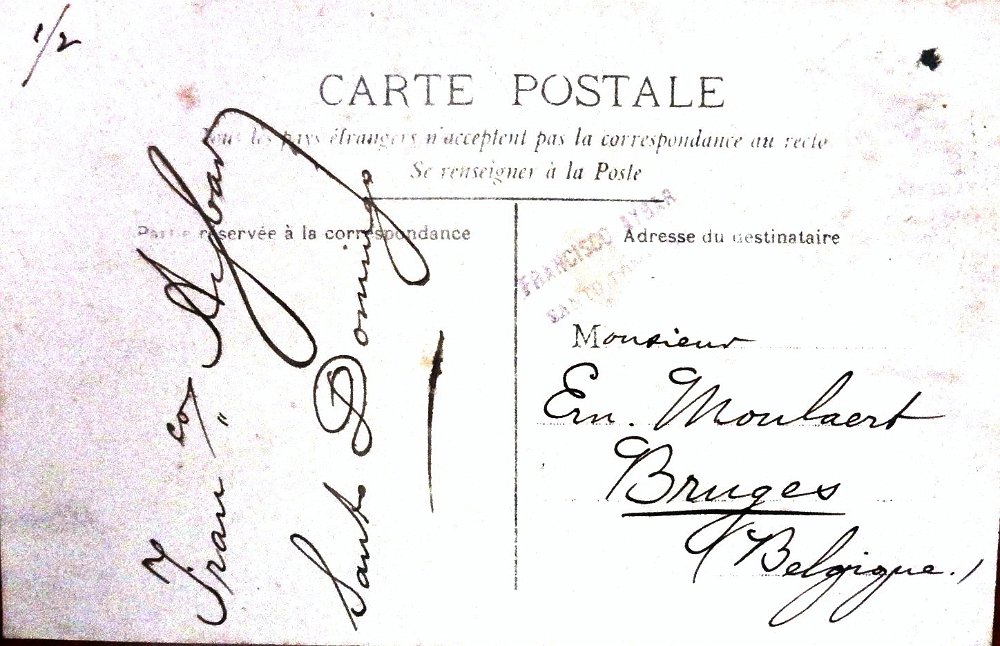 1/2
CARTE POSTALE
Tous les pays étrangers n'acceptent pas la correspondance au recto
Se renseigner à la Poste
Partie réservée à la correspondance
Adresse du destinataire
FRANCISCO AYBAR
SANTO
Franco Aybar
Santo Domingo
Monsieur
Ern. Moulaert
Bruges
(Belgique.)